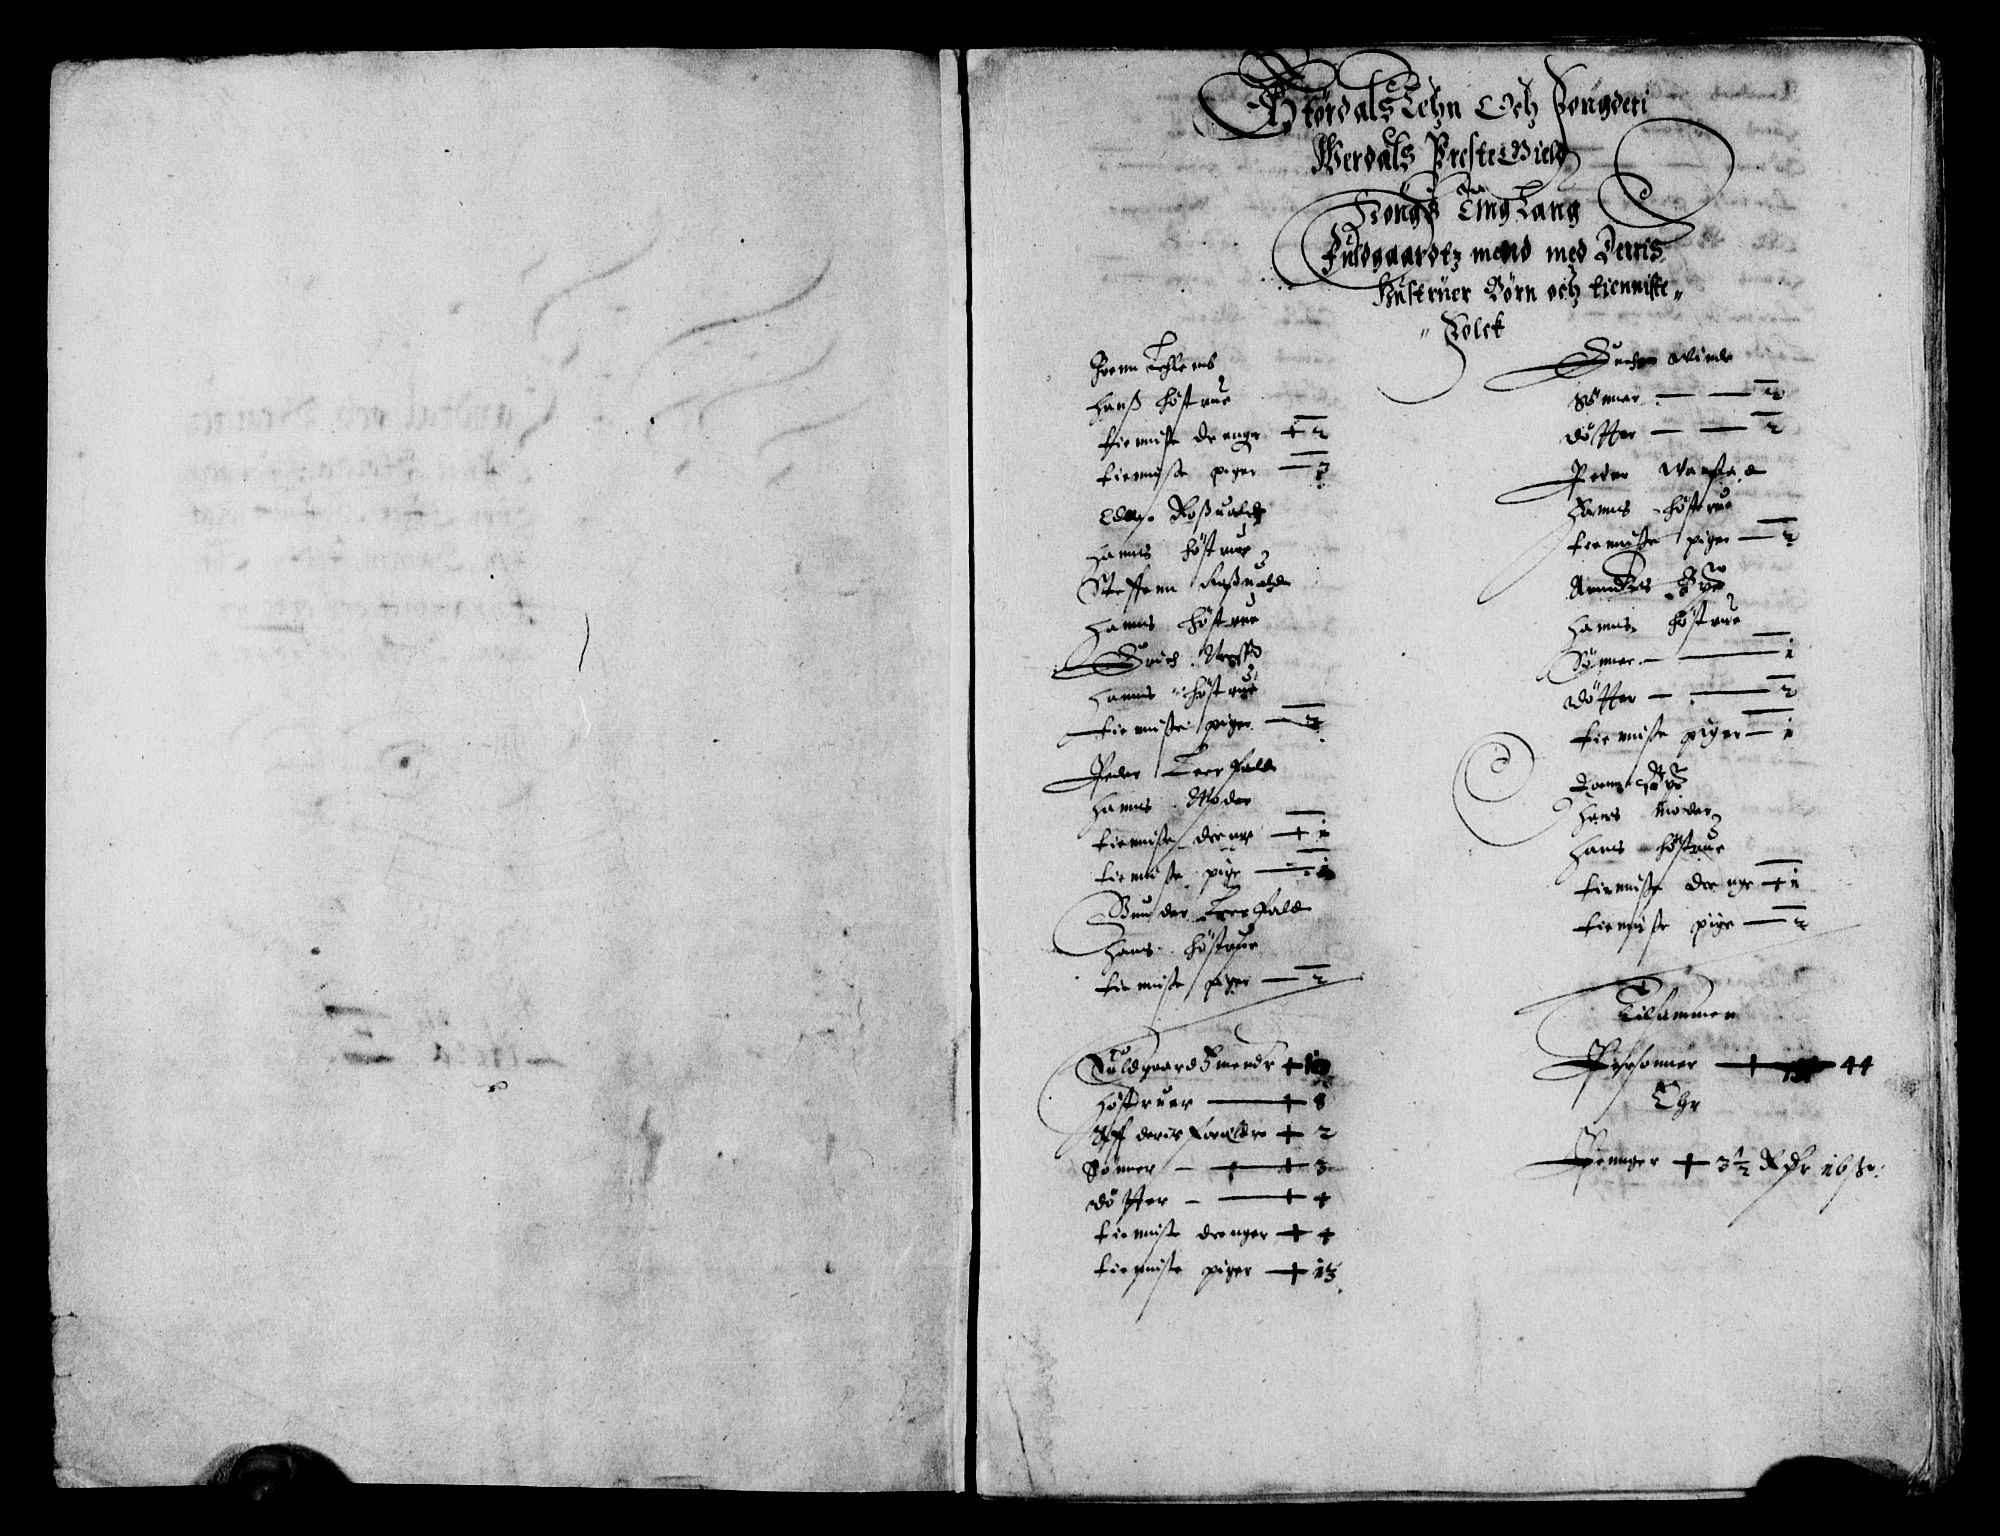 Størdals Lehn Och Fougderi
Werdals PresteGield
Kongs TingLaug
Fuldgaardtz mend med Derris
Hüstrüer Börn och tienniste„
„ Folck
Joenn
Hanß höstrue
tienniste drenge + 2
tienniste piger — 3
Roßuold
Hannis höstrue
Steffenn Roßuold
Hannis höstrue
Erich
Hannis höstrue
tienniste piger — 2
Peder Leerfald
Hannis Moder
tienniste drenge + i
tienniste pige — i
Gunder Leerfald
Hans höstrue
tienniste piger — 2
Fuldgaardßmend +
Höstruer — + 8
Aff deris Foreldre + 2
Sönner — + 3
Dötter — + 4
tienniste drenger + 4
tienniste piger + i3
Winde
Sönner — 2
Dötter — 2
Peder
Hannis höstrue
tienniste piger — 2
Hannis höstrue
Sönner — i
Dötter — 2
tienniste piger — i
Hans Moder
Hans höstrue
tienniste drenge + i
tienniste pige — 2
Tilsammen
Personner — 44
Ehr
Penger + 3½ Rdr i6 ß: